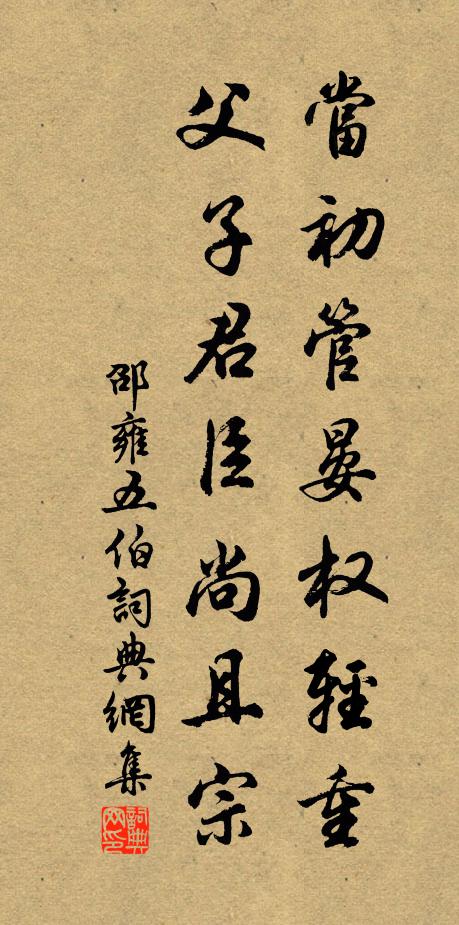 當初管晏权輕重
父子君臣尚且宗
邵雍五伯詞典網集
詞典网印